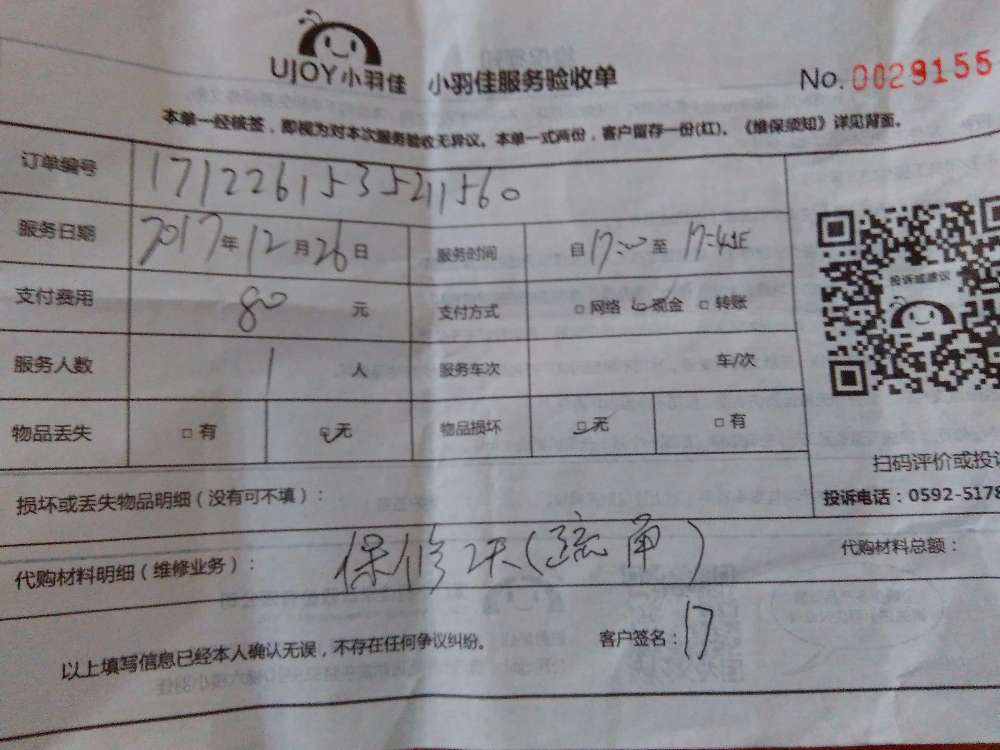 UJOY小羽佳 小羽佳服务验收单 No. 0029155
本单一经核签，即视为对本次服务验收无异议。本单一式两份，客户留存一份(红)。《维保须知》详见背面。
订单编号 171226153521560
服务日期 2017年12月26日 服务时间 自17:00至17:41
支付费用 80 元 支付方式 □网络 □现金 □转账
服务人数 1 人 服务车次 车/次
物品丢失 □有 □无 物品损坏 □无 □有
投诉或建议
扫码评价或投
投诉电话：0592-5178
损坏或丢失物品明细（没有可不填）：
代购材料明细（维修业务）： 保修 天(疏 ) 代购材料总额：
以上填写信息已经本人确认无误，不存在任何争议纠纷。 客户签名：17